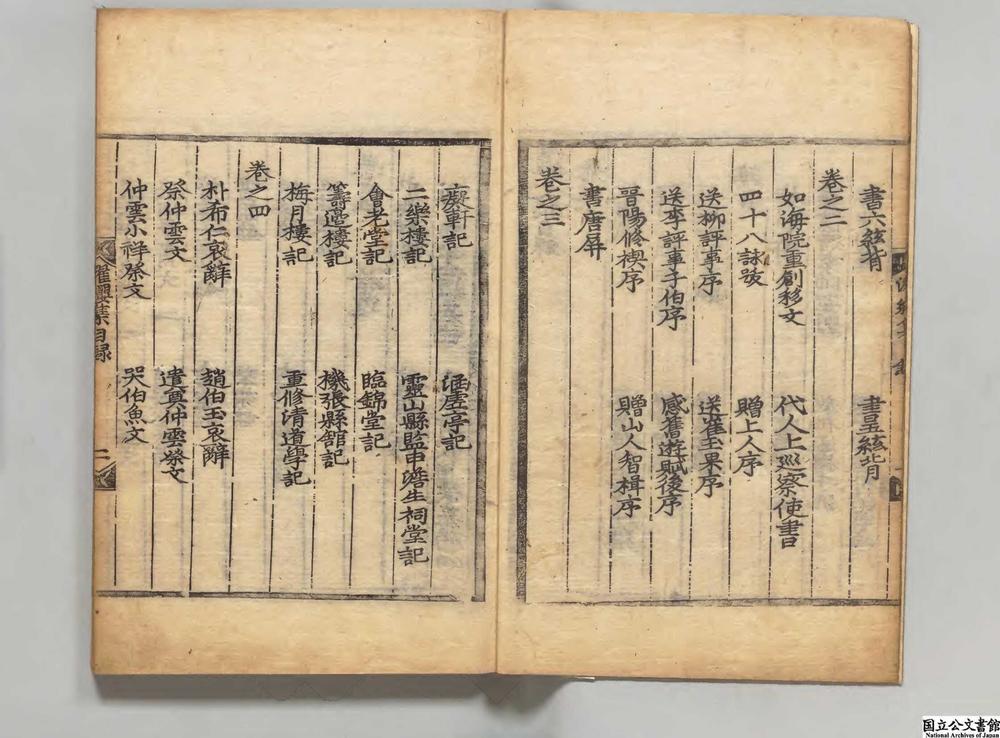 書六絃背　書五絃背
卷之二
如海院重創移文　代人上巡察使書
四十八詠跋　贈上人序
送柳評事序　送崔玉果序
送李評事子伯序　感舊遊賦後序
晉陽修禊序　贈山人智楫序
書唐屏
卷之三
癡軒記　涵虛亭記
二樂樓記　靈山縣監申澹生祠堂記
會老堂記　臨錦堂記
籌邊樓記　機張縣館記
梅月樓記　重修清道學記
卷之四
朴希仁哀辭　趙伯玉哀辭
祭仲雲文　遣奠仲雲祭文
仲雲小祥祭文　哭伯魚文
濯纓集目録　二
国立公文書館
National Archives of Japan